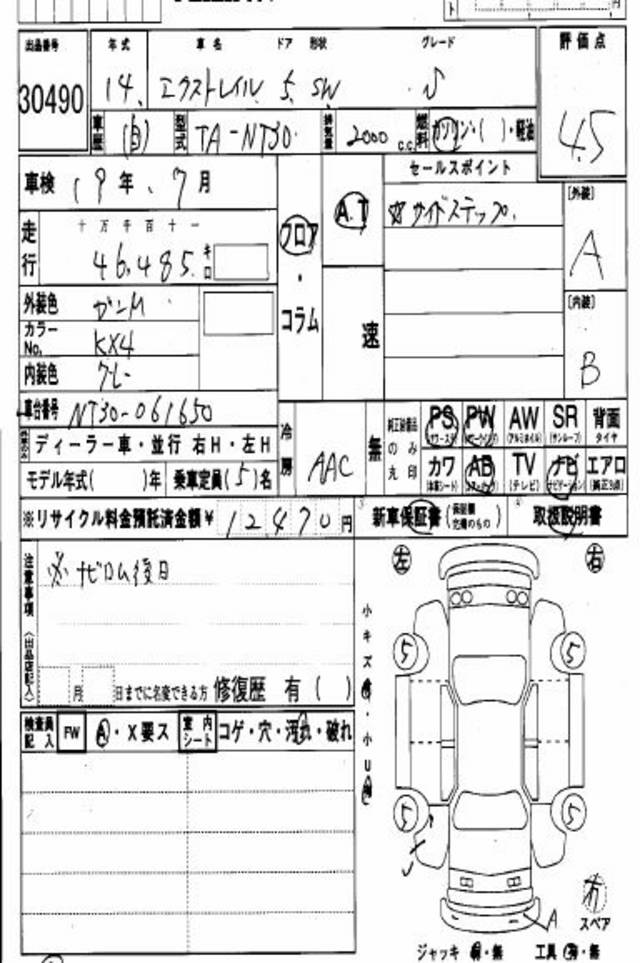 出品番号 年式 車名 ドア 形状 グレード 評価点
30490 14. エクストレイル 5 SW 4.5
車歴 (自) 型式 TA-NT30 排気量 2000 c.c. 燃料 ガソリン・( )・軽油
車検 19年 7月 セールスポイント
走行 十万千百十一 フロア A.T ※サイドステップ [外装]
46,485 キロ A
外装色 ガンM ・ [内装]
カラーNo. KX4 コラム 速 B
内装色 グレー
車台番号 NT30-061650 冷房 AAC 無 純正装備品のみ丸印 PS PW AW SR 背面
(パワーステ) (パワーウィンド) (アルミホイル) (サンルーフ) タイヤ
ディーラー車・並行 右H・左H カワ AB TV ナビ エアロ
モデル年式( )年 乗車定員(5)名 (本革シート) (エアバッグ) (テレビ) (ナビゲーション) (純正3点)
※リサイクル料金預託済金額¥ 12,470円 新車保証書(保証継続可能のもの) 取扱説明書
注意事項(出品店記入) ※ナビロム後日 左 右
小キズ
5 5
月 日までに名変できる方 修復歴 有( )
検査員記入 FW A・X要ス 室内シート コゲ・穴・汚れ・破れ
小U
5 5
A スペア
ジャッキ 有・無 工具 有・無